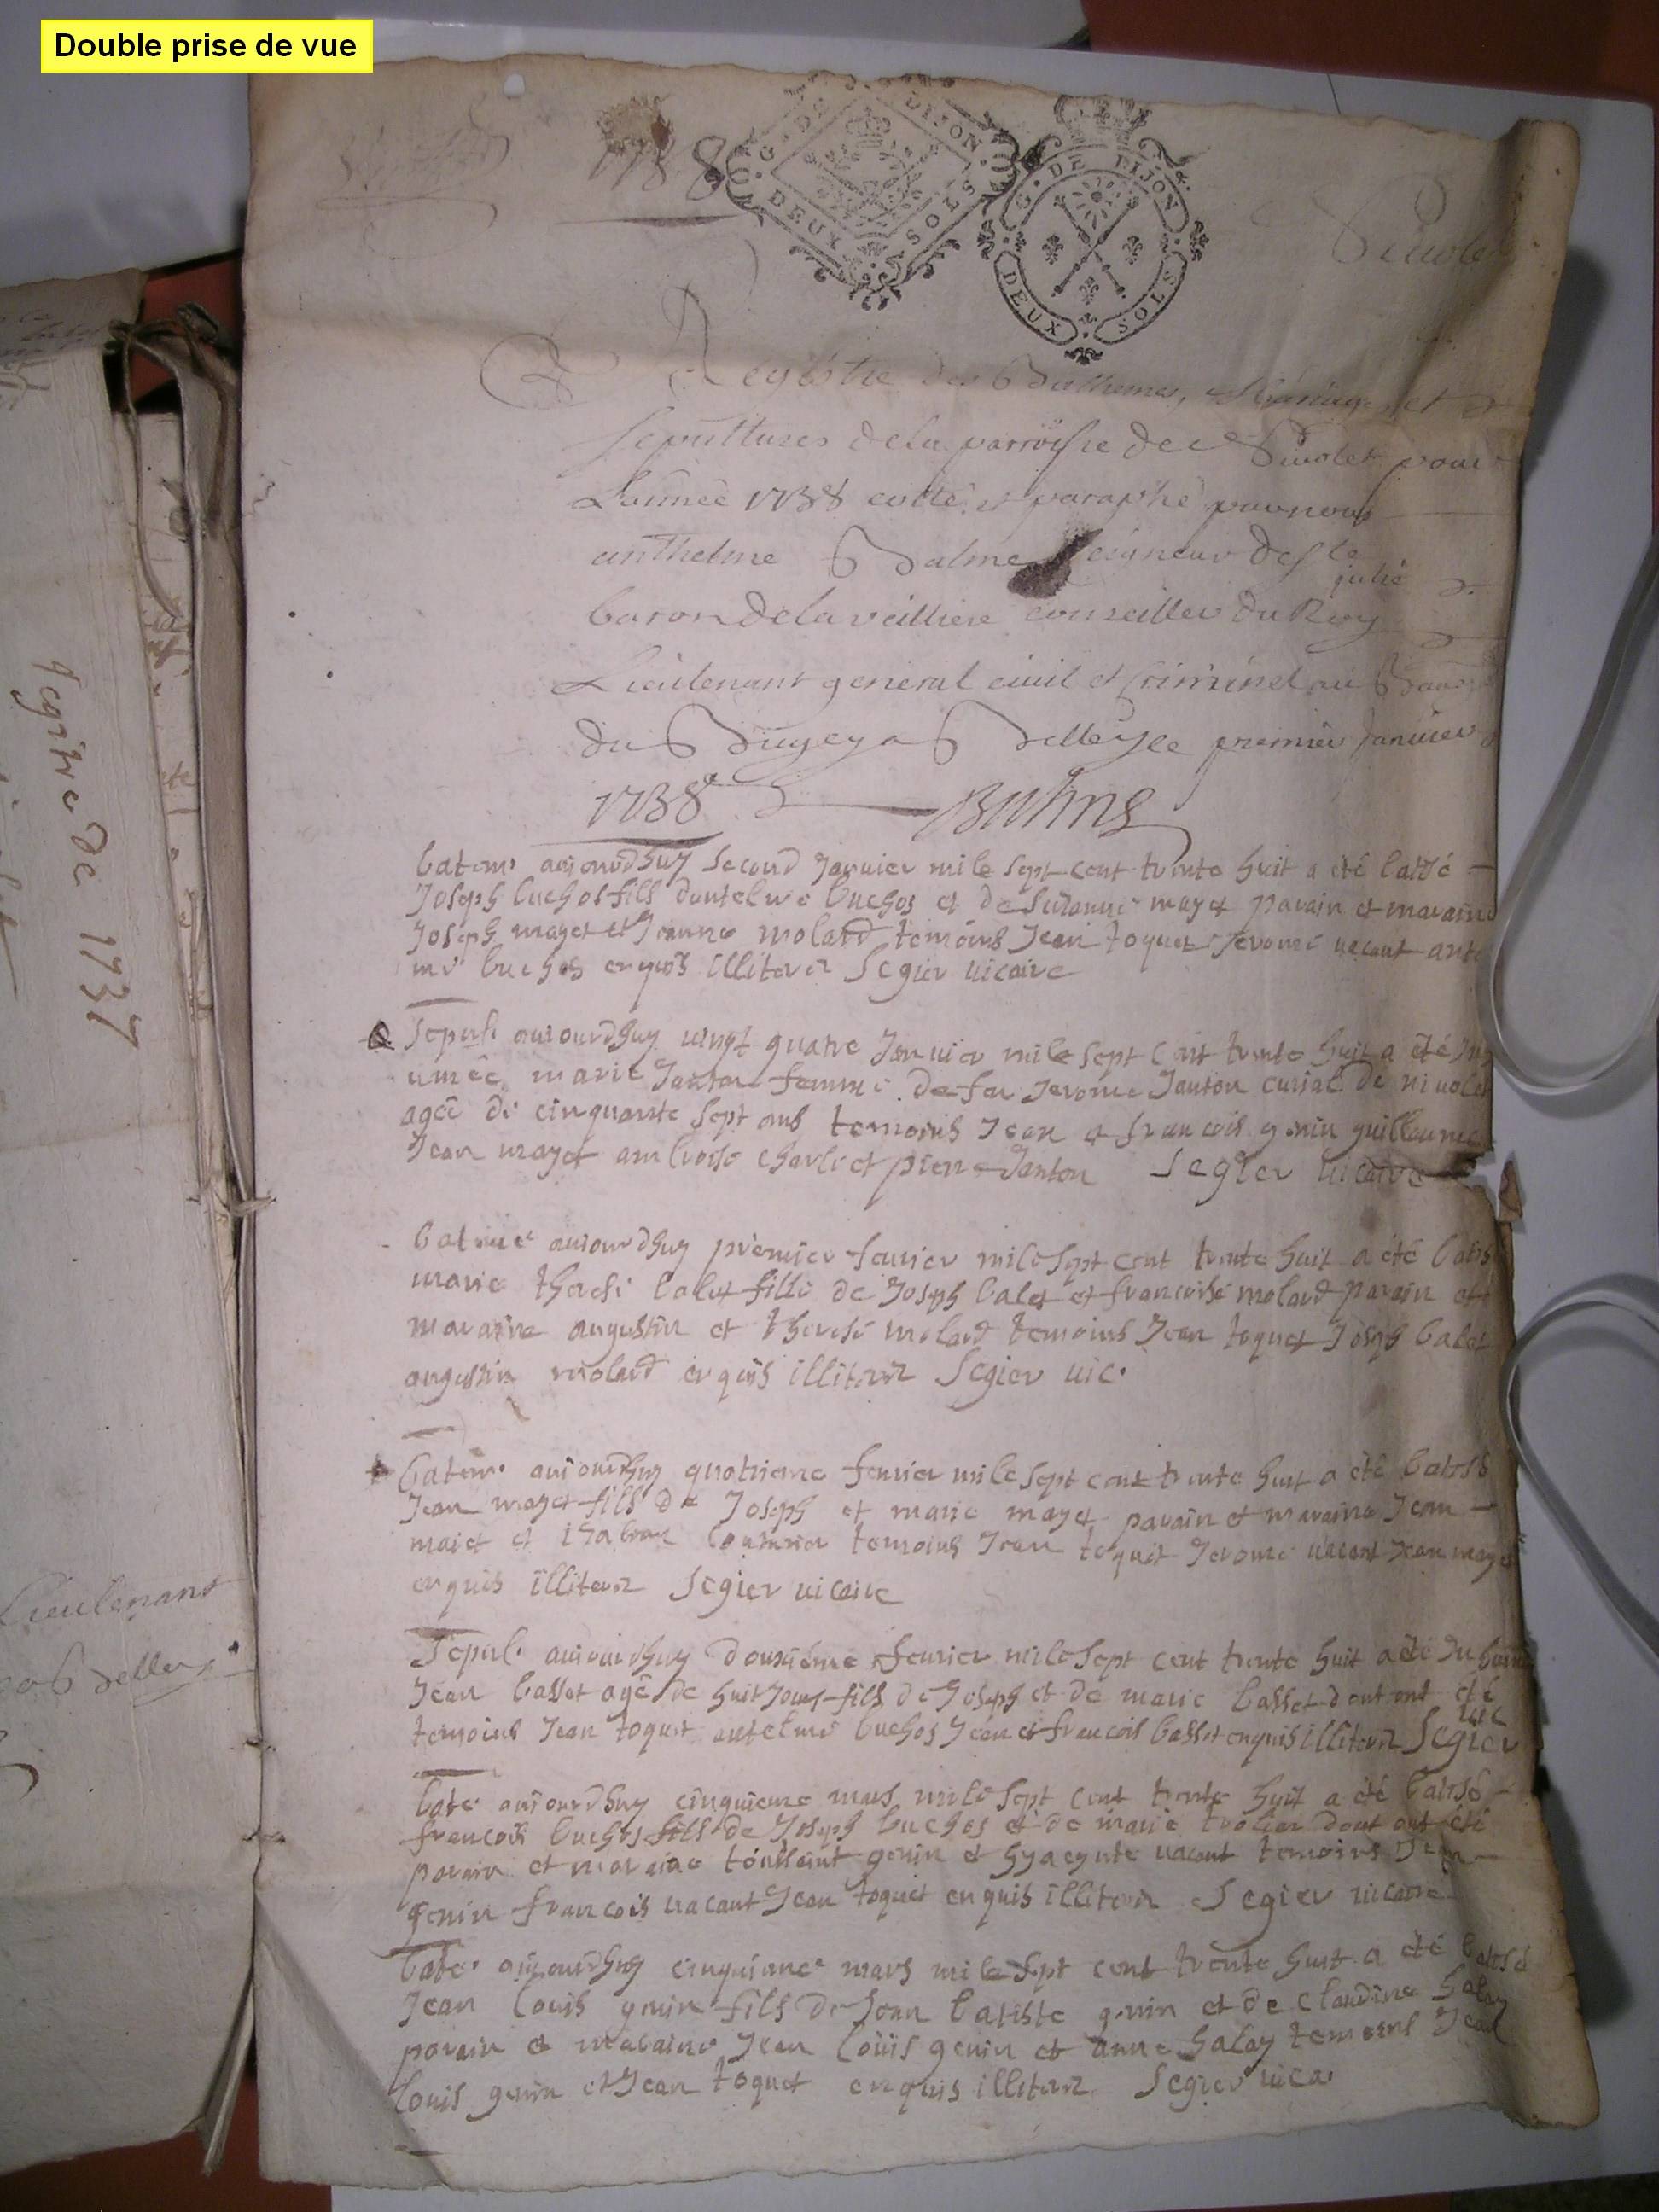 Double prise de vue
1738
G. DE DIJON
DEUX SOLS
G. DE DIJON
DEUX SOLS
Registre des Bathemes, Mariages et
sepulttures de la parroisse de Nivolet pour
L'année 1738 cotté et paraphé par nous
anthelme Balme seigneur de Ste
julie
baron de la veilliere conseiller du Roy
Lieutenant general civil et criminel au
du Bugey a Belley le premier Janvier
1738 Balme
batem. auiourdhuy second Janvier mile sept cent trente huit a été batisé
Joseph buchos fills dantelme buchos et de Susanne mayet parain et maraine
Joseph mayet et Jeanne molard temoins Jean toquet Jerome vacant ante
me buchos enquis illiterez Segier vicaire
Sepul. auiourdhuy vingt quatre Janvier mile sept cent trente huit a été in
umée marie Janton femme de feu Jerome Janton curial de nivolet
agée de cinquante sept ans temoins Jean et francois genin guillaume
Jean mayet ambroise charlet pierre Janton Segier vicaire
Bateme auiourdhuy premier feurier mile sept cent trente huit a été batis
marie therese balet fille de Joseph balet et francoise molard parain et
maraine augustin et therese molard temoins Jean toquet Joseph balet
augustin molard enquis illiterez Segier vic.
batem. auiourdhuy quatrieme feurier mile sept cent trente huit a été batisé
Jean mayet fils de Joseph et marie mayet parain et maraine Jean
maiet et temoins Jean toquet Jerome vacant Jean mayet
enquis illiterez Segier vicaire
Sepul. auiourdhuy douzieme feurier mile sept cent trente huit a été inhumé
Jean basset agé de huit Jours fils de Joseph et de marie basset dont ont eté
temoins Jean toquet antelme buchos Jean et francois basset enquis illiterez Segier
vic
bate. auiourdhuy cinquieme mars mile sept cent trente huit a été batisé
francois buchos fills de Joseph buchos et de marie trolier dont ont été
parain et maraine toussaint genin et hyacynte vacant temoins Jean
genin francois vacant Jean toquet enquis illiterez Segier vicaire
bate. auiourdhuy cinquieme mars mile sept cent trente huit a été batisé
Jean louis genin fils de Jean batiste genin et de claudine halay
parain et maraine Jean louis genin et anne halay temoins Jean
louis genin et Jean toquet enquis illiterez Segier vica
regitre de 1737
Lieutenant
a Belley